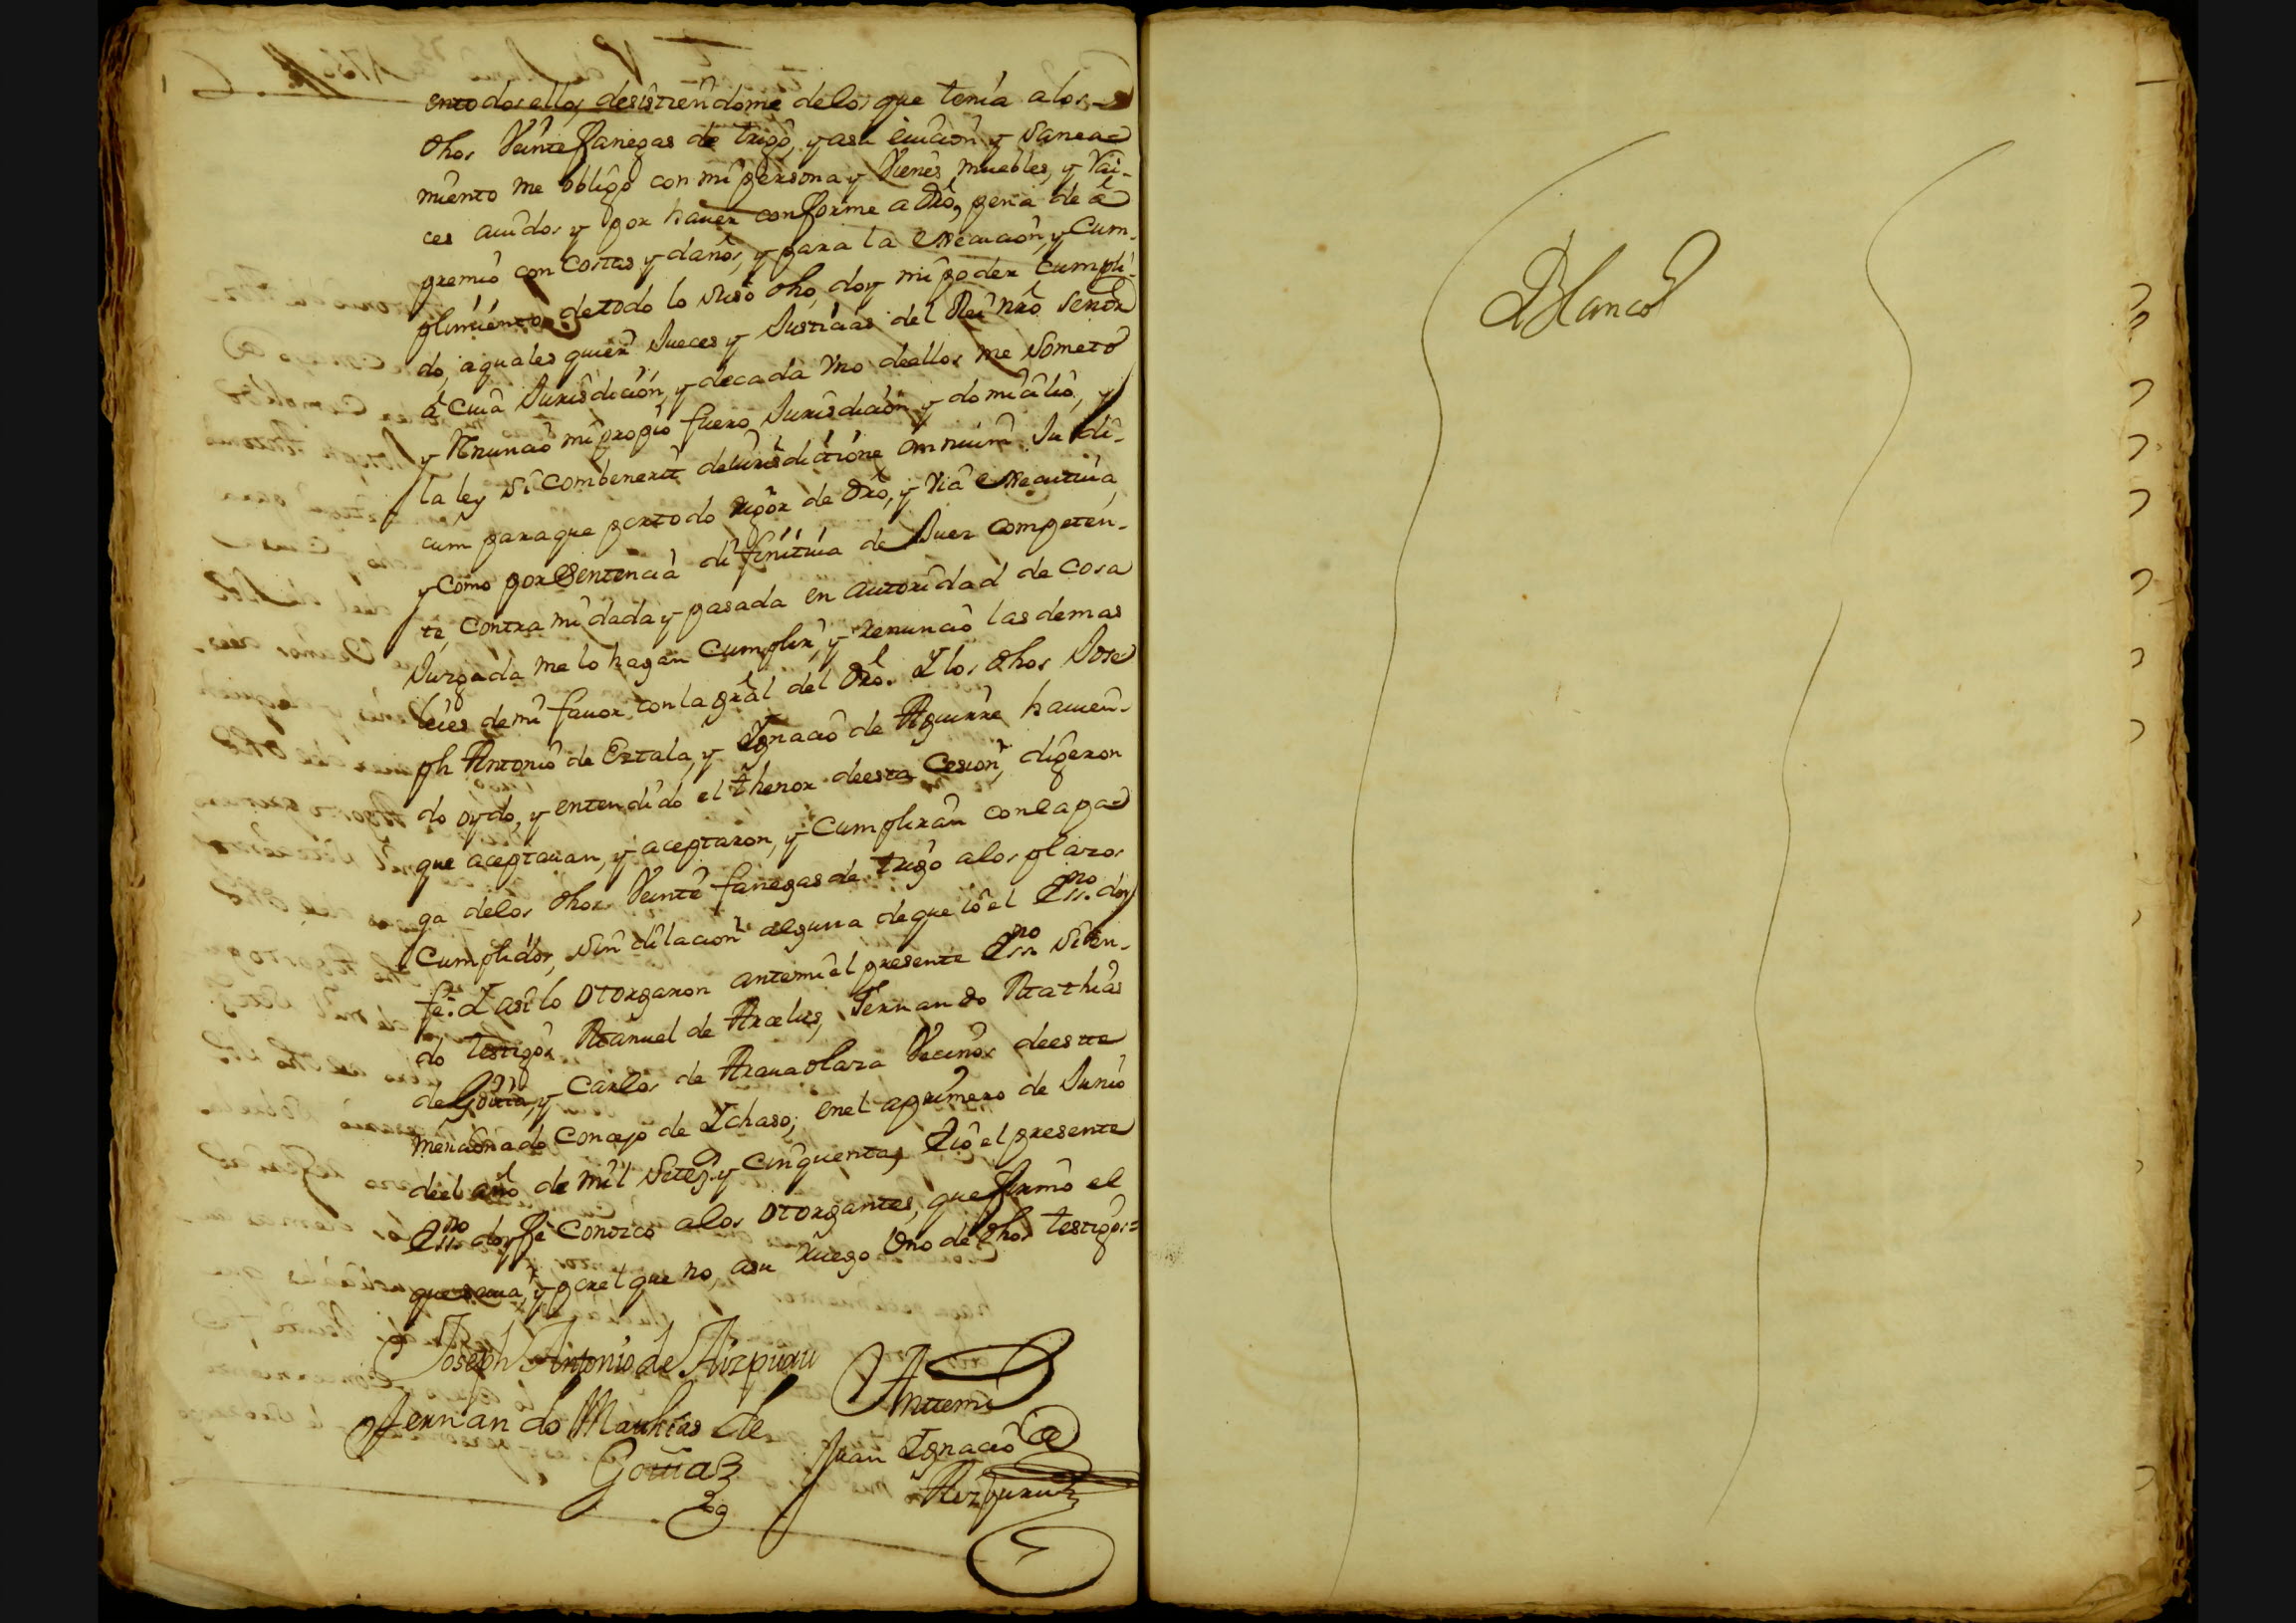 entodos ellos, desistiendome delos que tenia alos
dhos Veinte fanegas de trigo, y asu euicion y Sanea-
miento me obligo con mi persona y Vienes muebles, y Rai-
ces auidos y por hauer conforme a dro, pena de a
premio con costas y daños, y para la execucion, y Cum-
plimiento detodo lo suso dho, doy mi poder Cumpli-
do, aquales quier Jueces y Justicias del Rei nro Señor
á Cuia Jurisdicion, y decada Vno deellos me Someto
y Renuncio mi propio fuero Jurisdicion y domicilio, y
la ley si Combenerit de Jurisdictione omnium Judi-
cum paraque portodo rigor de dro, y Via executiua,
y como por Sentencia difinitiua de Juez Competen-
te, contra mi dada y pasada en autoridad de Cosa
Juzgada me lo hagan Cumplir, y renuncio las demas
leies demi fauor con la gral del dro. Y los dhos Jose
ph Antonio de Eztala, y Ygnacio de Aguirre hauien-
do oydo, y entendido el thenor deesta Cesion, digeron
que aceptauan, y aceptaron, y Cumpliran con la pa-
ga delos dhos Veinte fanegas de trigo alos plazos
Cumplidos, sin dilacion alguna deque io el Essno doy
fe. Y asi lo otorgaron antemi el presente Essno Sien-
do testigos Manuel de Arcelus, Fernando Mathias
de Goiria, y Carlos de Arauaolaza Vecinos deeste
mencionado Concejo de Ychaso, enel a primero de Junio
deel año de mil Seteçs y Cinquenta, E io el presente
Essno doy fe conozco alos otorgantes, que firmó el
que sauia, y porel que no, asu ruego Vno de dhos testigos=
Joseph Antonio de Aizpuru
Antemi
Fernando Mathias de
Goiria
Juan Ygnacio de
Aizpuru
Blanco